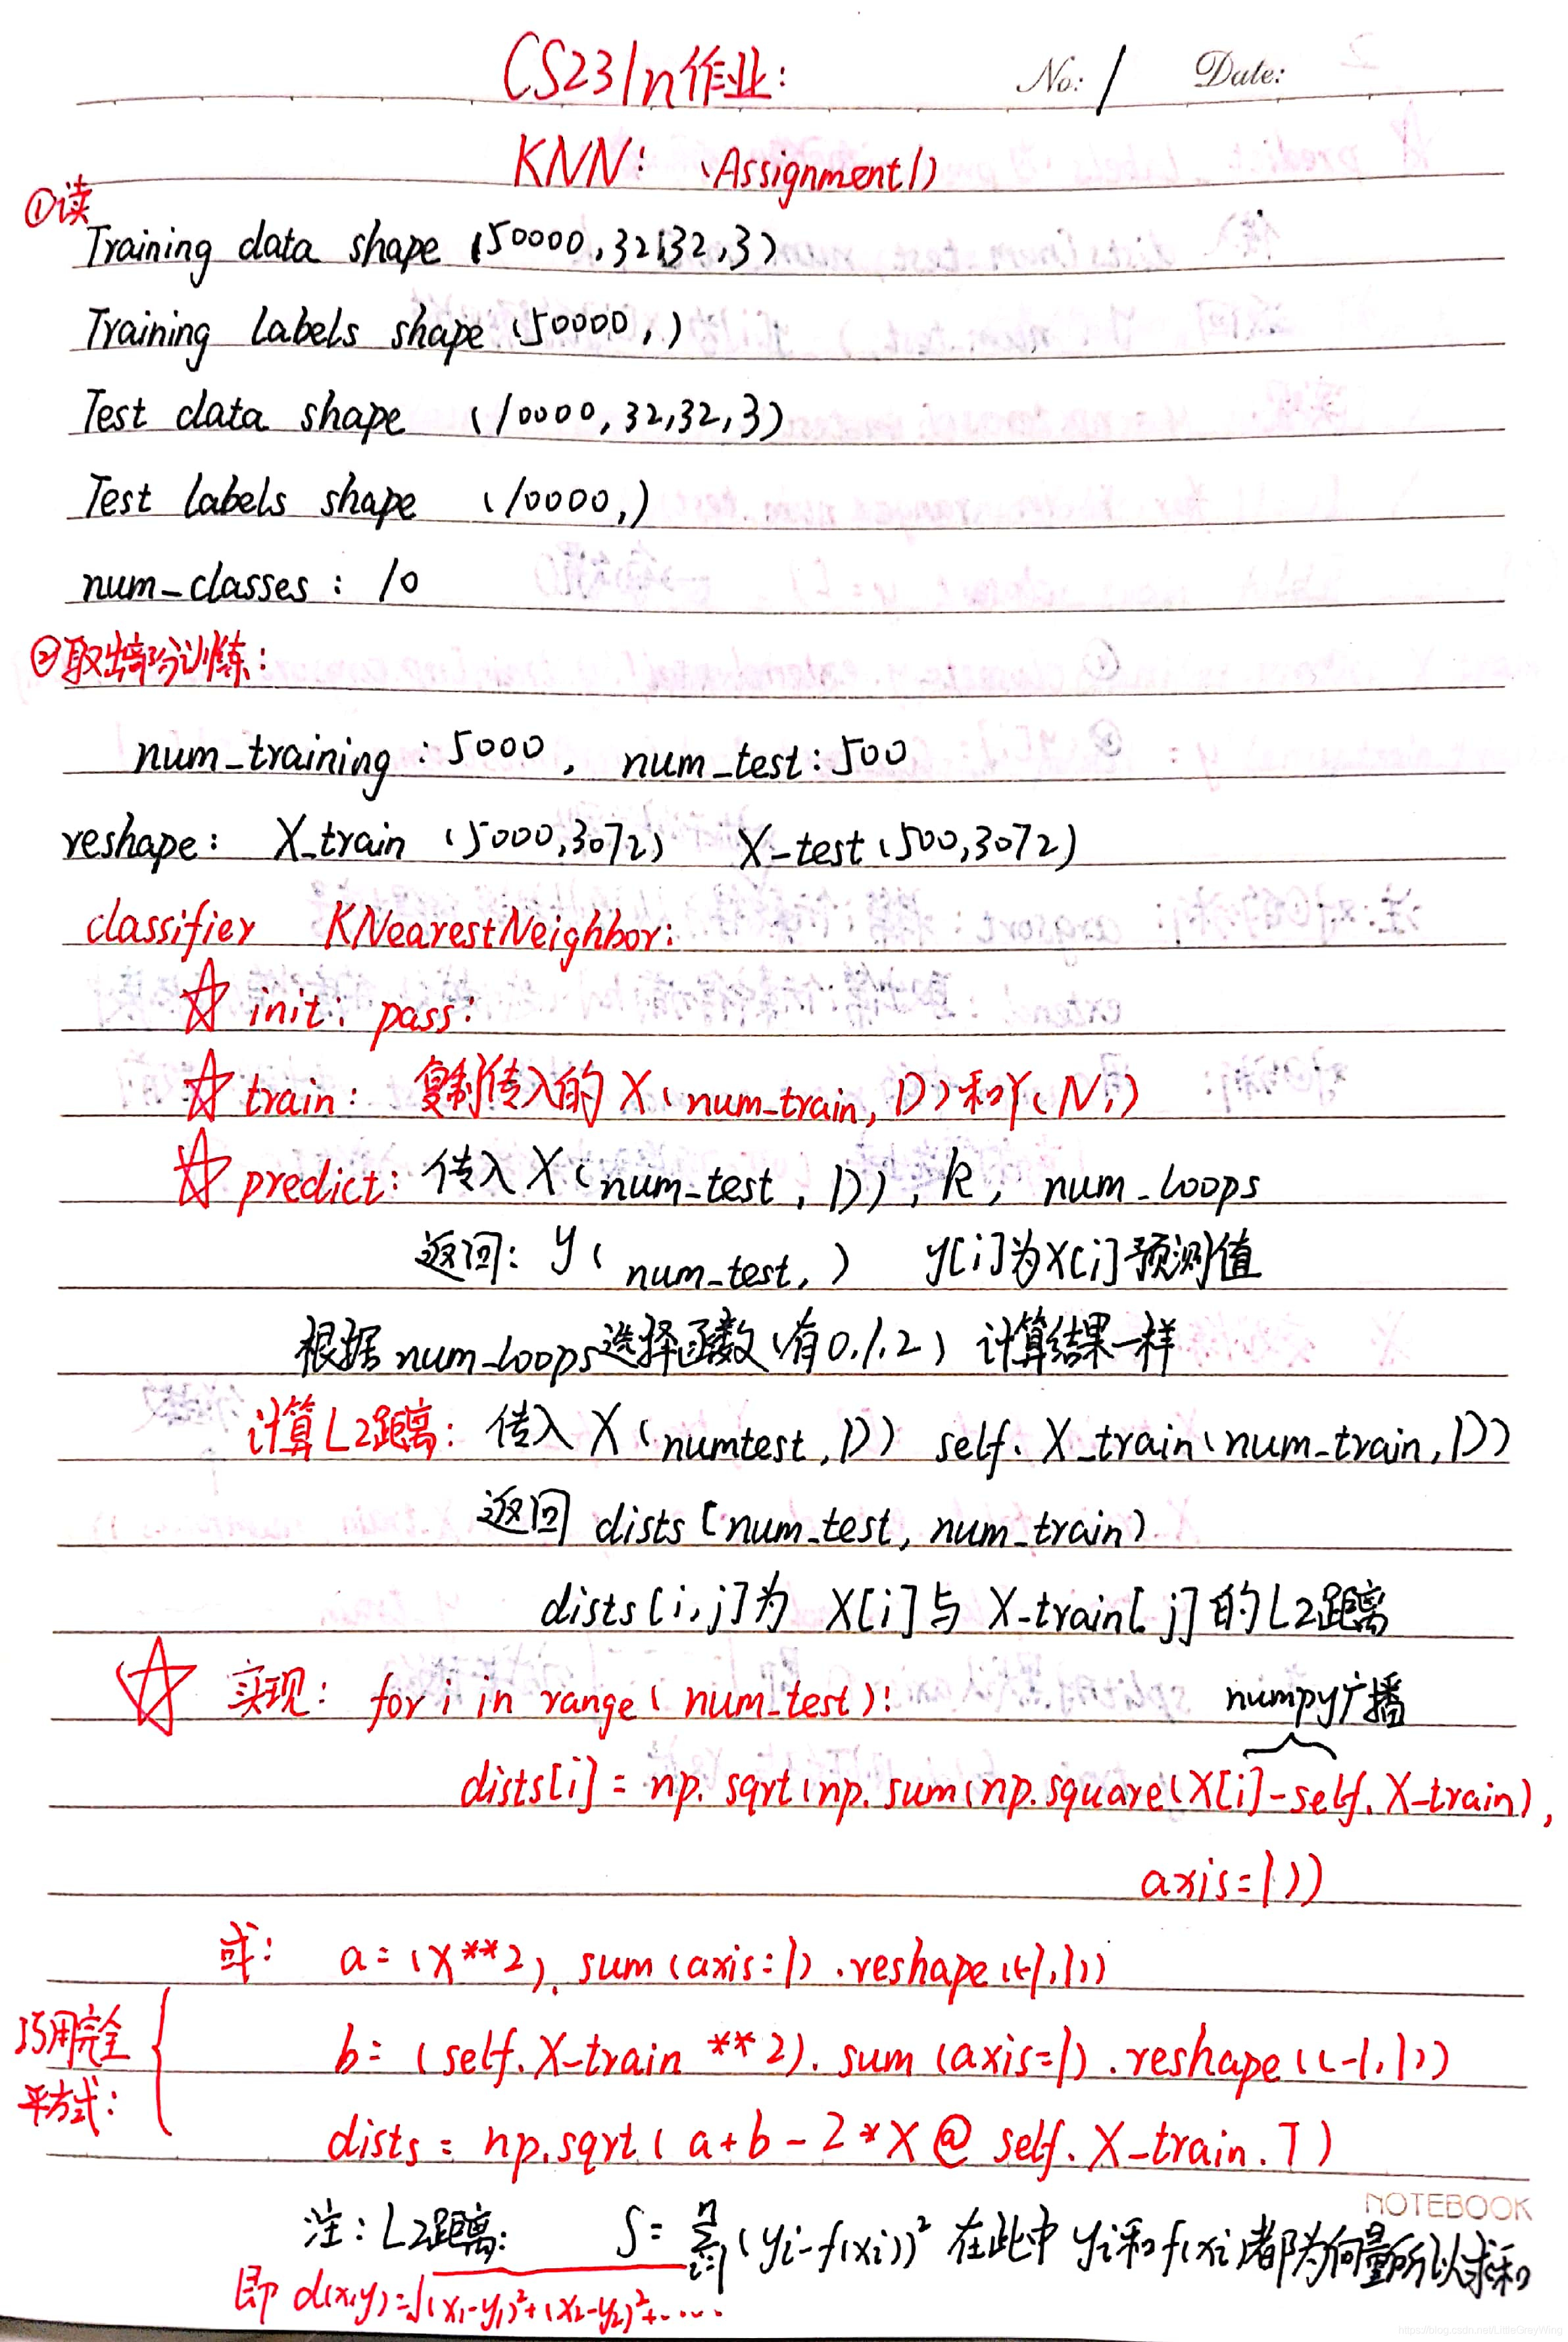 CS231n作业:
No: 1 Date:
KNN: (Assignment1)
①读
Training data shape (50000,32,32,3)
Training labels shape (50000,)
Test data shape (10000,32,32,3)
Test labels shape (10000,)
num_classes: 10
②取出部分训练:
num_training: 5000, num_test: 500
reshape: X_train (5000,3072) X_test (500,3072)
classifier KNearestNeighbor:
☆ init: pass:
☆ train: 复制传入的X(num_train, D)和Y(N,)
☆ predict: 传入X(num_test, D), k, num_loops
返回: y(num_test,) y[i]为X[i]预测值
根据num_loops选择函数(有0.1.2) 计算结果一样
计算L2距离: 传入X(numtest, D) self.X_train(num_train, D)
返回 dists [num_test, num_train)
dists[i,j]为 X[i]与 X_train[j]的L2距离
☆ 实现: for i in range(num_test):
numpy广播
dists[i] = np.sqrt(np.sum(np.square(X[i]-self.X_train),
axis=1))
或: a=(X**2).sum(axis=1).reshape((-1,1))
巧用完全
b=(self.X_train **2).sum(axis=1).reshape((-1,1))
平方式:
dists = np.sqrt(a+b-2*X @ self.X_train.T)
NOTEBOOK
注: L2距离: S=∑ⁿᵢ₌₁(yi-f(xi))² 在此中yi和f(xi)都为向量所以求和
即 d(x,y)=√(x₁-y₁)²+(x₂-y₂)²+.....
https://blog.csdn.net/LittleGreyWing